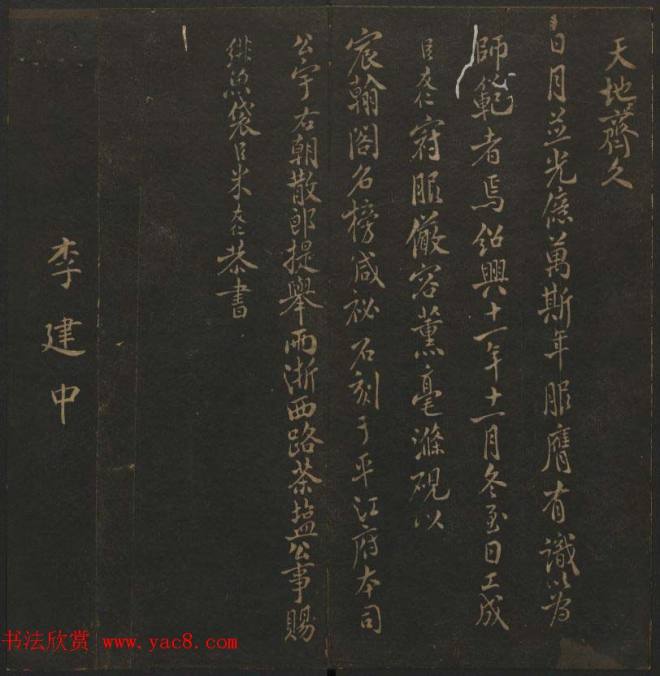 天地齊久
日月並光億萬斯年服膺有識以為
師範者焉紹興十一年十一月冬至日工成
臣友仁冠服儼容薰毫滌硯以
宸翰閣名榜咸祕石刻于平江府本司
公宇右朝散郎提舉兩浙西路茶塩公事賜
緋魚袋臣米友仁恭書
李建中
书法欣赏 www.yac8.com